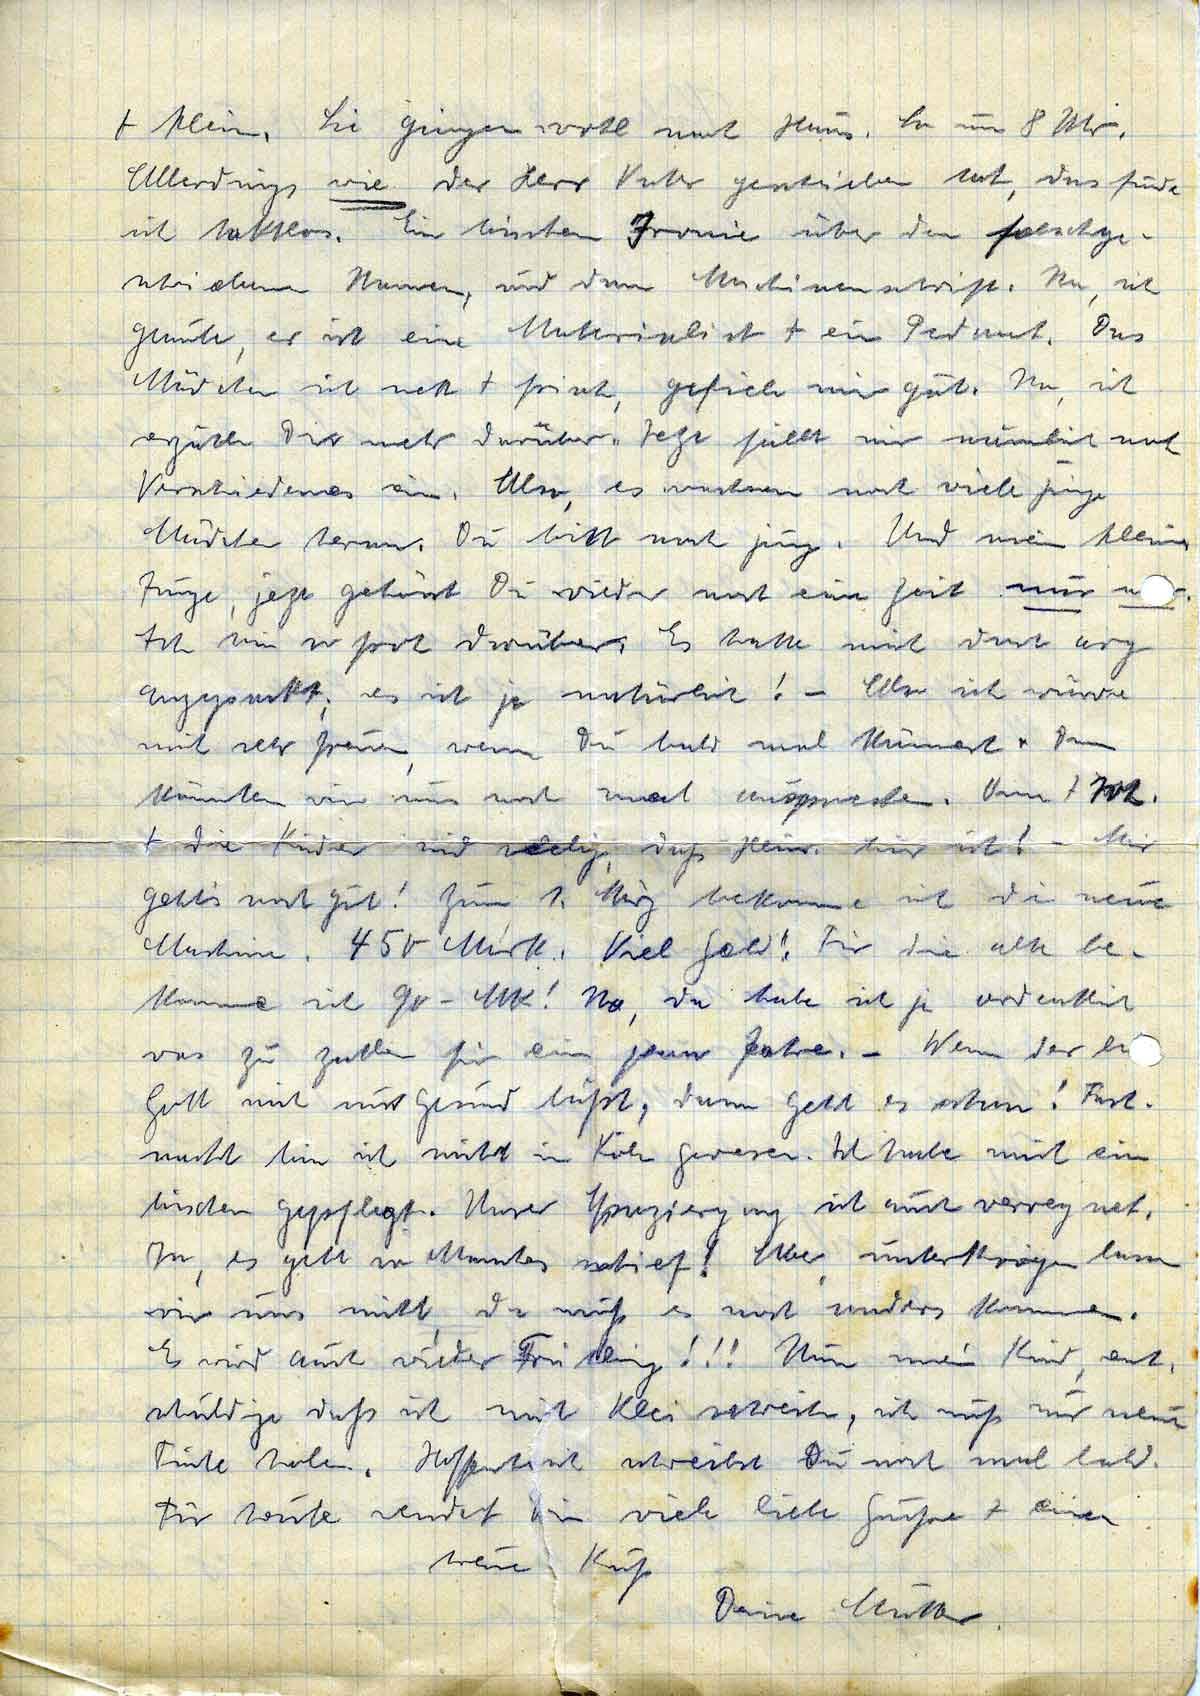 + klein. Sie gingen wohl nach Haus. So um 8 Uhr.
Allerdings wie der Herr Vater geschrieben hat, das finde
ich taktlos. Ein bischen Ironie über den falschge-
schriebenen Namen, und dann Maschinenschrift. Na, ich
glaube, er ist eine Materialist + ein Pedant. Das
Mädchen ist nett + frisch, gefiel mir gut. Na, ich
erzähle Dir mehr darüber. Jetzt fällt mir nämlich noch
Verschiedenes ein. Also, es wachsen noch viele junge
Mädchen heran. Du bist noch jung. Und mein kleiner
Junge, jetzt gehörst Du wieder noch eine Zeit nur
Ich bin so froh darüber. Es hatte mich doch arg
angepackt, es ist ja natürlich! – Also ich würde
mich sehr freuen, wenn Du bald mal kämest. Dann
könnten wir uns noch mal aussprechen. +
+ die Kinder sind selig, daß Heinr. hier ist! – Mir
geht's noch gut! Zum 1. März bekomme ich die neue
Maschine. 450 Mark. Viel Geld! Für die alte be-
komme ich 90 – Mk! Na, da habe ich ja ordentlich
was zu zahlen für ein paar Jahre. – Wenn der
Gott mich nur gesund läßt, dann geht es schon! Fast-
nacht bin ich nicht in Köln gewesen. Ich habe mich ein
bischen gepflegt. Unser Spaziergang ist auch verregnet.
Ja, es geht so Manches schief! Aber, unterkriegen lassen
wir uns nicht, da muß es noch anders kommen.
Es wird auch wieder Frühling!!! Nun mein Kind, ent-
schuldige daß ich mit Blei schreibe, ich muß mir neue
Tinte holen. Hoffentlich schreibst Du noch mal bald.
Für heute sendet Dir viele liebe Grüße + einen
treuen Kuß
Deine Mutter.